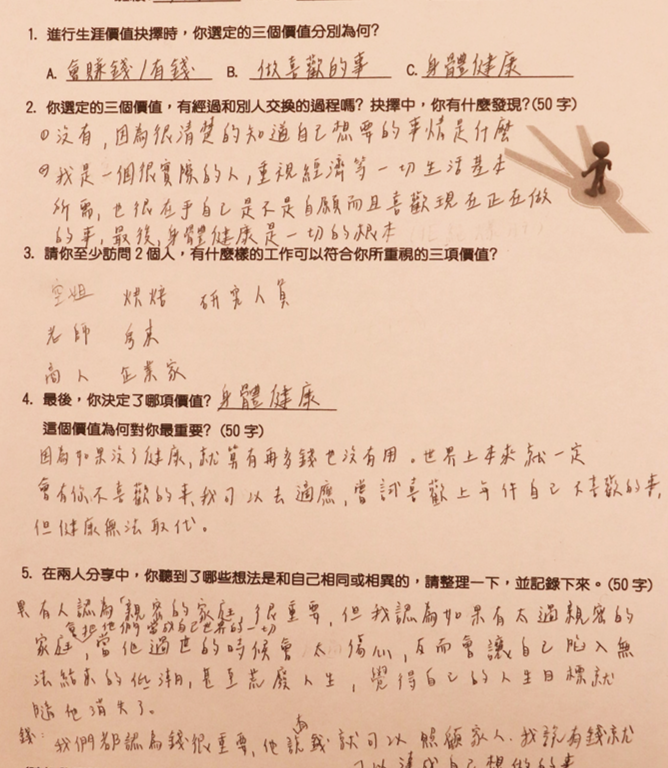 1. 進行生涯價值抉擇時，你選定的三個價值分別為何？
A. 會賺錢/有錢 B. 做喜歡的事 C. 身體健康
2. 你選定的三個價值，有經過和別人交換的過程嗎？抉擇中，你有什麼發現？(50 字)
①沒有，因為很清楚的知道自己想要的事情是什麼
②我是一個很實際的人，重視經濟等一切生活基本
所需，也很在乎自己是不是自願而且喜歡現在正在做
的事，最後，身體健康是一切的根本
3. 請你至少訪問 2 個人，有什麼樣的工作可以符合你所重視的三項價值？
空姐 烘焙 研究人員
老師
商人 企業家
4. 最後，你決定了哪項價值？身體健康
這個價值為何對你最重要？(50 字)
因為如果沒了健康，就算有再多錢也沒有用。世界上本來就一定
會有你不喜歡的事，我可以去適應，嘗試喜歡上每件自己不喜歡的事，
但健康無法取代。
5. 在兩人分享中，你聽到了哪些想法是和自己相同或相異的，請整理一下，並記錄下來。(50 字)
異 有人認為「親密的家庭」很重要，但我認為如果有太過親密的
會把他們當成自己世界的一切
家庭，當他過世的時候會太傷心，反而會讓自己陷入無
法結束的低潮，甚至荒廢人生，覺得自己的人生目標就
隨他消失了。
錢：我們都認為錢很重要，他說有錢就可以照顧家人，我說有錢就
可以達成自己想做的事